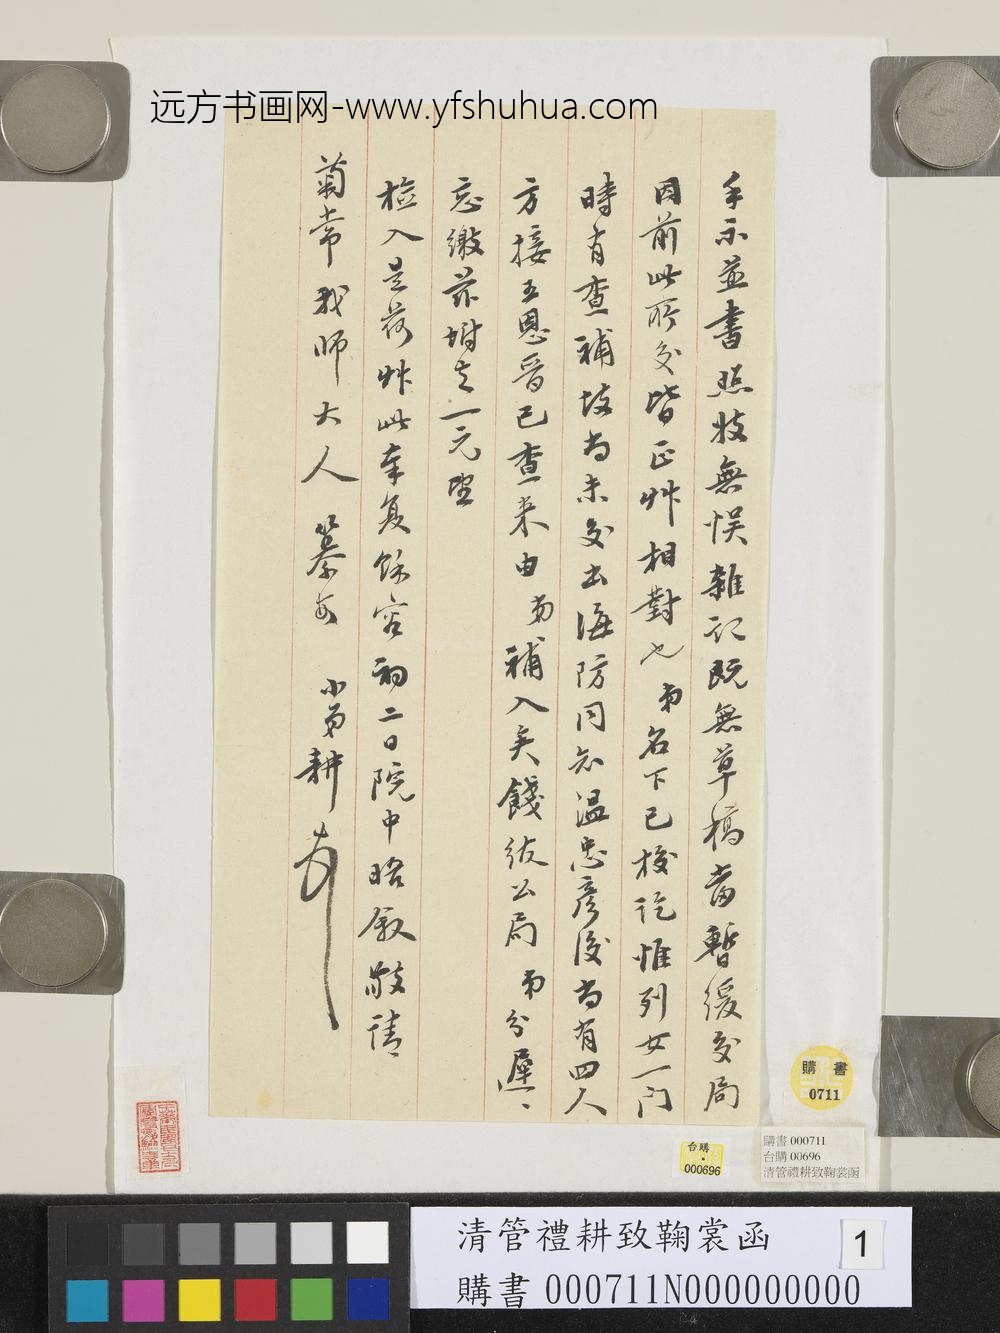 远方书画网-www.yfshuhua.com
手示並書照收無悞雜記既無草稿當暫緩交局
因前此所交皆正艸相對也弟名下已校訖惟列女一门
時有查補故尚未交出海防同知温忠彦後尚有四人
方接王恩晉已查来由弟補入矣餞紱公局弟分遲〻
忘繳茲坿去一元望
檢入是荷艸此奉复餘容初二日院中晤敘敬请
菊常我师大人 篹安 小弟耕
購書
0711
台購
000696
購書 000711
台購 00696
清管禮耕致鞠裳函
清管禮耕致鞠裳函
1
購書 000711N000000000